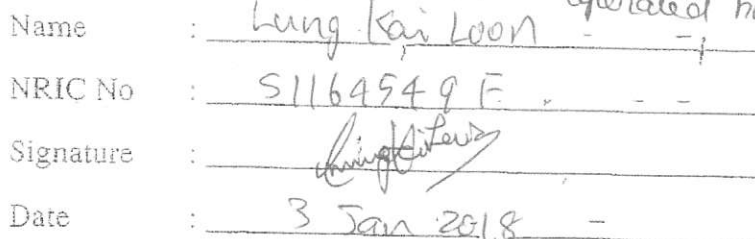 operated
Name : Lung Kai Loon
NRIC No : S1164549F
Signature :
Date : 3 Jan 2018